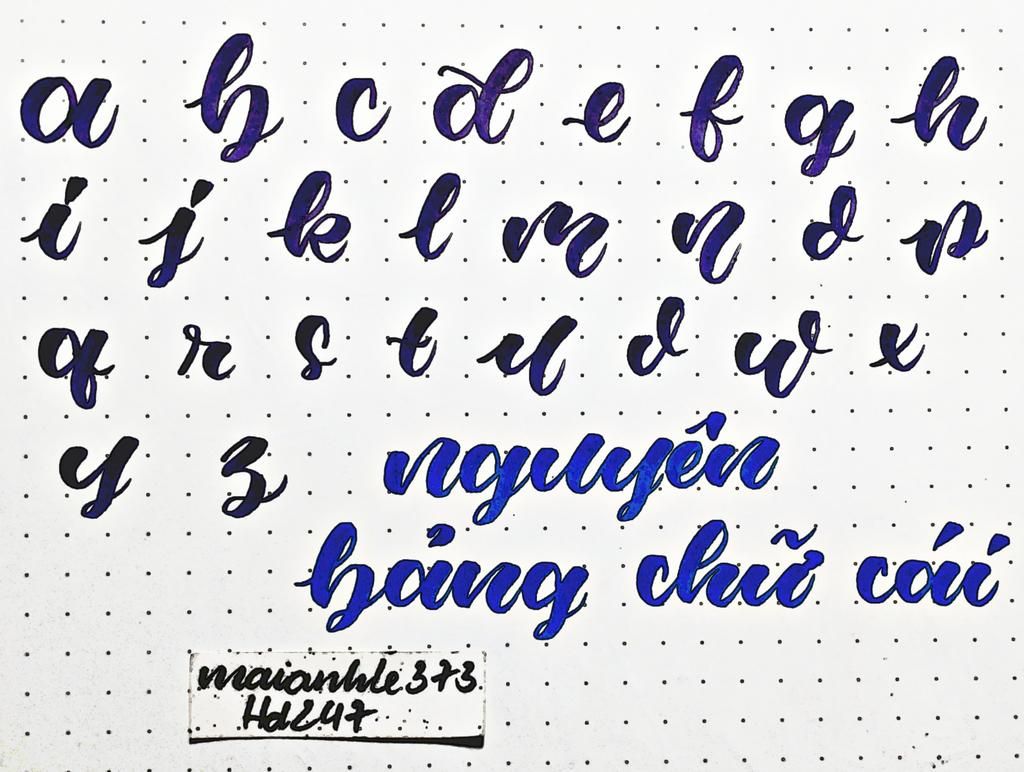 a b c d e f g h
i j k l m n o p
q r s t u v w x
y z nguyên
bảng chữ cái
maianhle373
Hd247